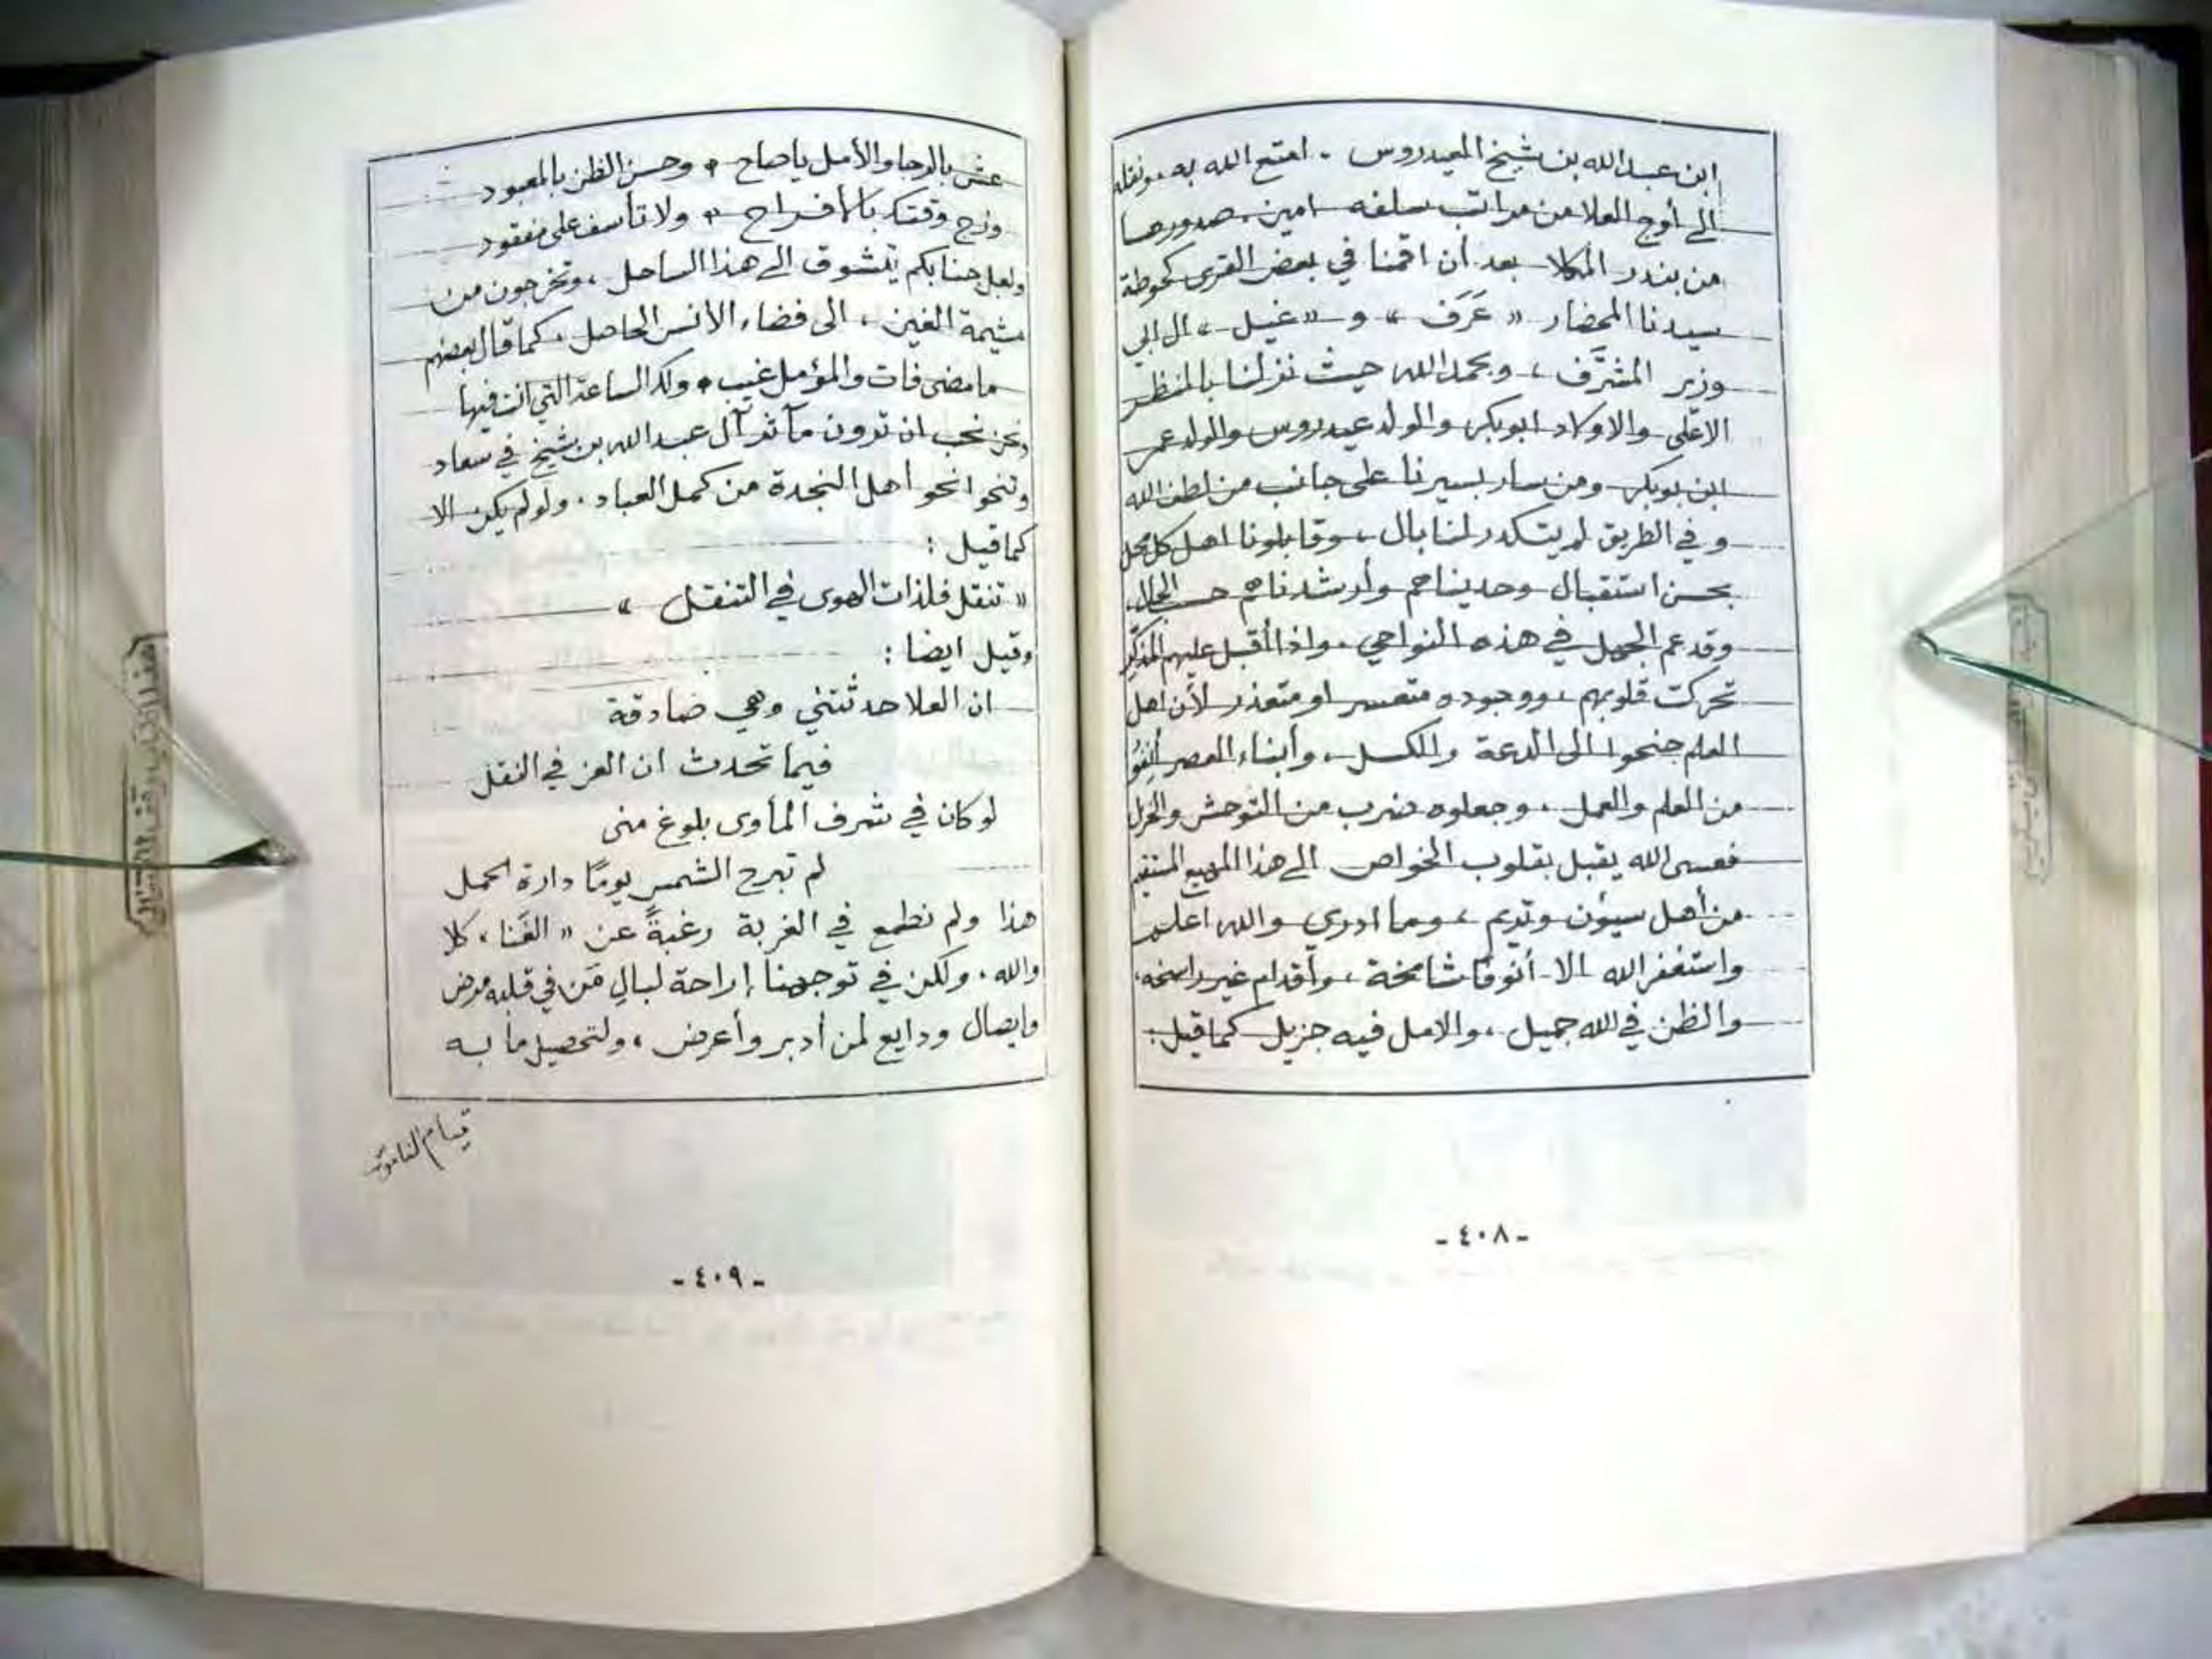 ابن عبدالله بن شيخ العيدروس - امتع الله به، ونقله
الى أوج العلا من مراتب سلفه امين، صدورها
من بندر المكلا بعد أن اقمنا في بعض القرى كحوطة
سيدنا المحضار « عَرَف » و « غيل » ال ابي
وزير المشرَّف، وبحمد الله حيث نزلنا بالمنظر
الاعلى والاولاد ابوبكر والولد عيدروس والولد عمر
ابن بوبكر ومن سار بسيرنا على جانب من لطف الله
وفي الطريق لم يتكدر لنا بال، وقابلونا اهل كل محل
بحسن استقبال وحديناهم وأرشدناهم حسب الحال،
وقد عم الجهل في هذه النواحي، واذا أقبل عليهم المذكِّر
تحركت قلوبهم، ووجوده متعسر او متعذر لأن اهل
العلم جنحوا الى الدعة والكسل، وأبناء العصر أنِفُو
من العلم والعمل، وجعلوه ضرب من التوحش والخزل
فعسى الله يقبل بقلوب الخواص الى هذا المهيع المستقيم
من أهل سيؤن وتريم، وما ادري والله اعلم
واستغفر الله الا أنوفًا شامخة، وأقدام غير راسخه،
والظن في الله جميل، والامل فيه جزيل كما قيل:
-٤٠٨-
عش بالرجا والأمل ياصاح * وحسن الظن بالمعبود
وزج وقتك بالافراح * ولا تأسف على مفقود
ولعل جنابكم يتشوق الى هذا الساحل، وتخرجون من
مشيمة الغين، الى فضاء الأنس الحاصل، كما قال بعضهم
مامضى فات والمؤمل غيب * ولك الساعة التي انت فيها
ونحن نحب ان ترون مآثر آل عبدالله بن شيخ في
وتنحوا نحو أهل النجدة من كمل العباد. ولولم يكن الا
كما قيل:
« تنقل فلذات الهوى في التنقل »
وقيل ايضا:
ان العلا حدثتني وهي صادقة
فيما تحدث ان العز في النقل
لو كان في شرف المأوى بلوغ منى
لم تبرح الشمس يومًا دارة الحمل
هذا ولم نطمع في الغربة رغبةً عن « الغَنا، كلا
والله، ولكن في توجهنا إراحة لبالِ مَن في قلبه مرض
وايصال ودايع لمن أدبر وأعرض، ولتحصيل ما به
قيام الناموس
-٤٠٩-